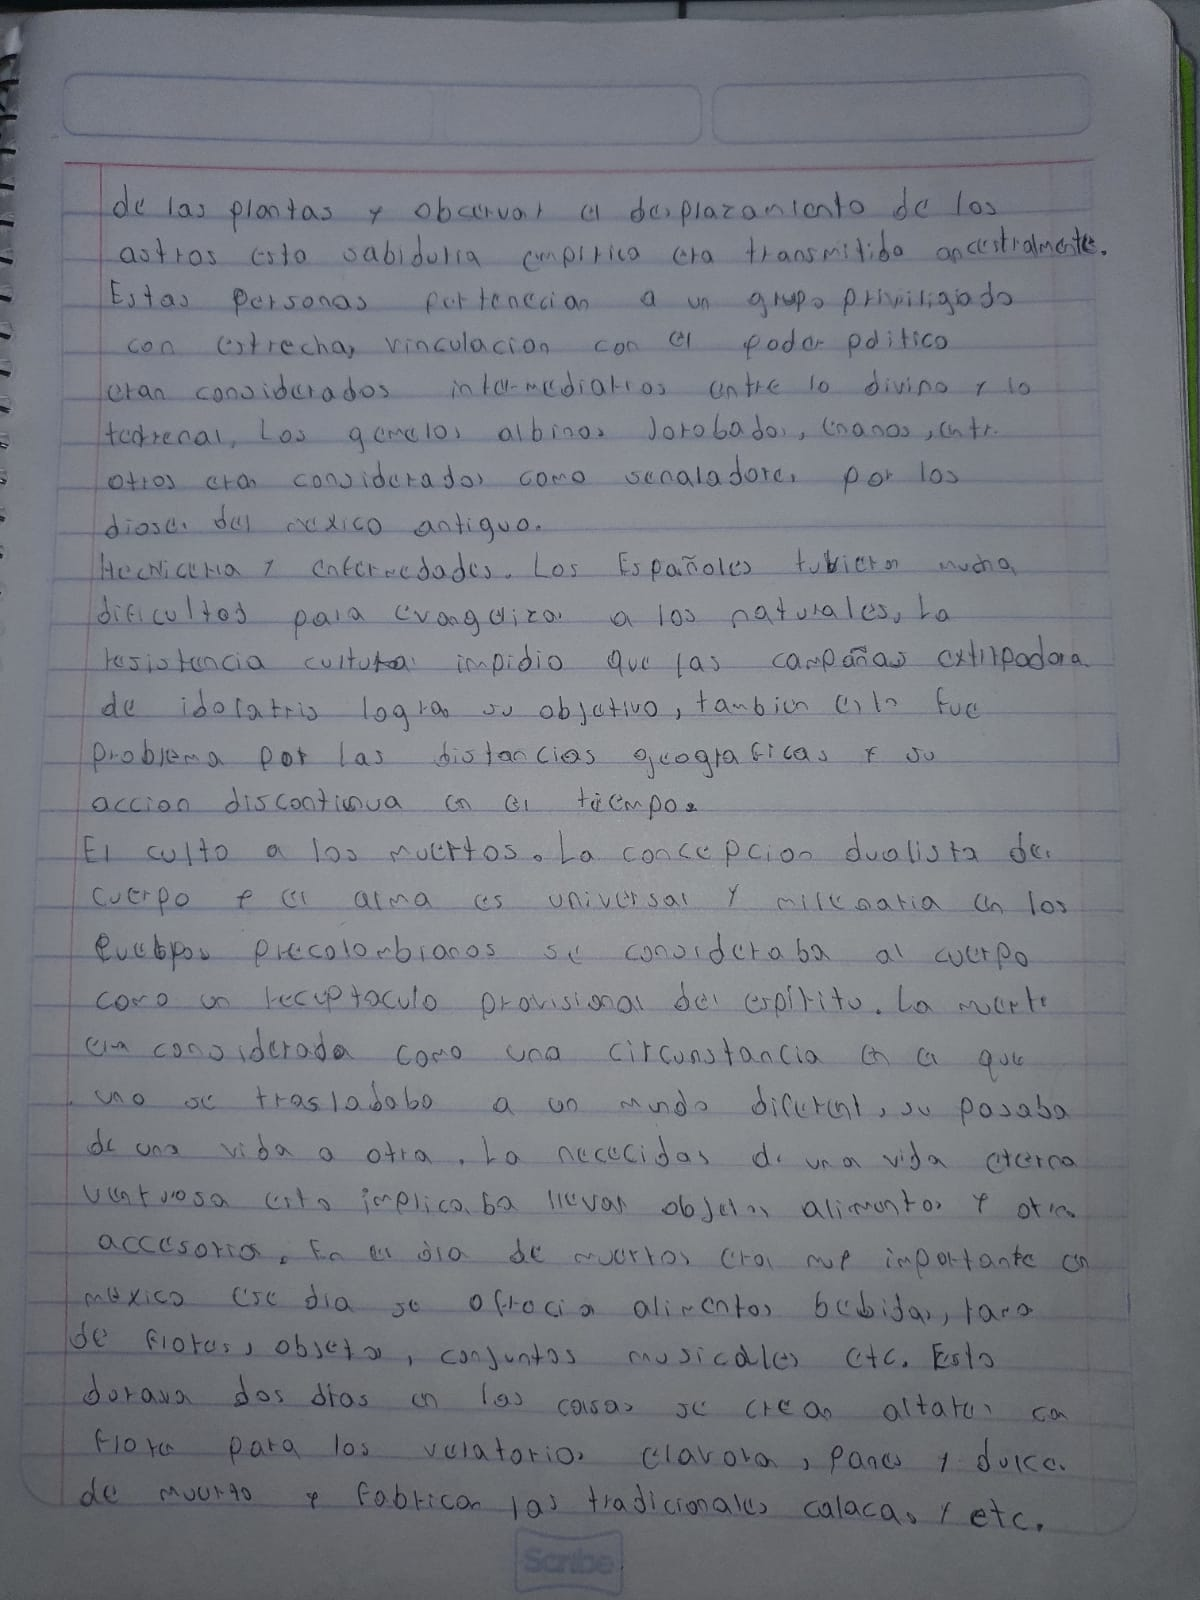 de las plantas y observar el desplazamiento de los
astros esta sabiduria empirica era transmitida ancestralmente.
Estas personas pertenecian a un grupo priviligiado
con estrechas vinculacion con el poder politico
eran considerados intermediarios entre lo divino y lo
terrenal. Los gemelos albinos Jorobados, enanos, entr.
otros eran considerados como senaladores por los
dioses del mexico antiguo.
Hechiceria y enfermedades. Los Españoles tubieron mucha
dificultos para evangelizar a los naturales, La
resistencia cultural impidio que las campañas extirpadora
de idolatris logran su objetivo, tambien esto fue
problema por las distancias geograficas y su
accion discontinua en el tiempo.
El culto a los muertos. La concepcion dualista del
cuerpo y el alma es universal y milenaria en los
Pueblos precolombianos se consideraba al cuerpo
como un receptaculo provisional del espiritu. La muerte
era considerada como una circunstancia en la que
uno se trasladaba a un mundo diferent, su pasaba
de una vida a otra. La nececidas de una vida eterna
esto implicaba llevar objetos alimentos y otros
accesorios. En el dia de muertos era muy importante en
mexico ese dia se ofrecia alimentos bebidas,
de flores, objetos, conjuntos musicales etc. Esto
durava dos dias en las casas se crean altares con
flores para los velatorios clavora, panes y dulces
de muerto y fabrican las tradicionales calacas y etc.
Scribe